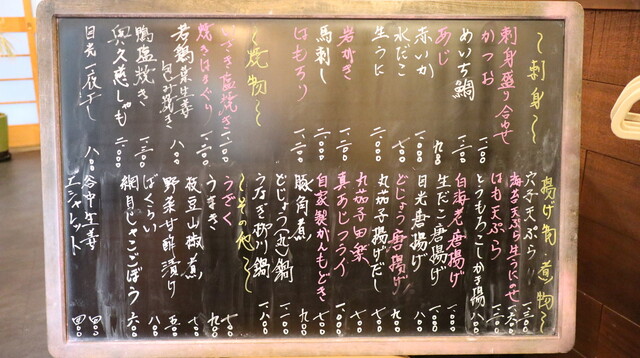 ～刺身～
刺身盛り合せ
かつお 一.一〇〇
めいち鯛
あじ 九〇〇
赤いか
水だこ 九〇〇
生うに 二.〇〇〇
岩がき 一.二〇〇
馬刺し 二.〇〇〇
はもちり 一.二〇〇
～焼物～
うなぎ塩焼き 二.一〇〇
焼きはまぐら 一.二〇〇
若鶏葉生姜包み焼き 八〇〇
鴨塩焼き 一.三〇〇
奥久慈しゃも 二.〇〇〇
目光一夜干し 八〇〇
揚げ物・煮物～
穴子天ぷら 一.三〇〇
海苔天ぷら生うにのせ
はも天ぷら 一.二〇〇
とうもろこしかき揚 八〇〇
白海老唐揚げ 一.一〇〇
生だこ唐揚げ 一.〇〇〇
目光唐揚げ 八〇〇
どじょう唐揚げ 九〇〇
丸茄子揚げだし 七〇〇
丸茄子田楽 七〇〇
真あじフライ 一.〇〇〇
自家製がんもどき 七〇〇
豚角煮 九〇〇
どじょう(丸)鍋 一.二〇〇
うなぎ柳川鍋 一.八〇〇
～その他～
うざく 七〇〇
うまき 九〇〇
枝豆山椒煮 七〇〇
野菜甘酢漬け 五〇〇
ばくらい 八〇〇
網目じゃこごぼう 六〇〇
谷中生姜 四〇〇
エシャレット 四〇〇